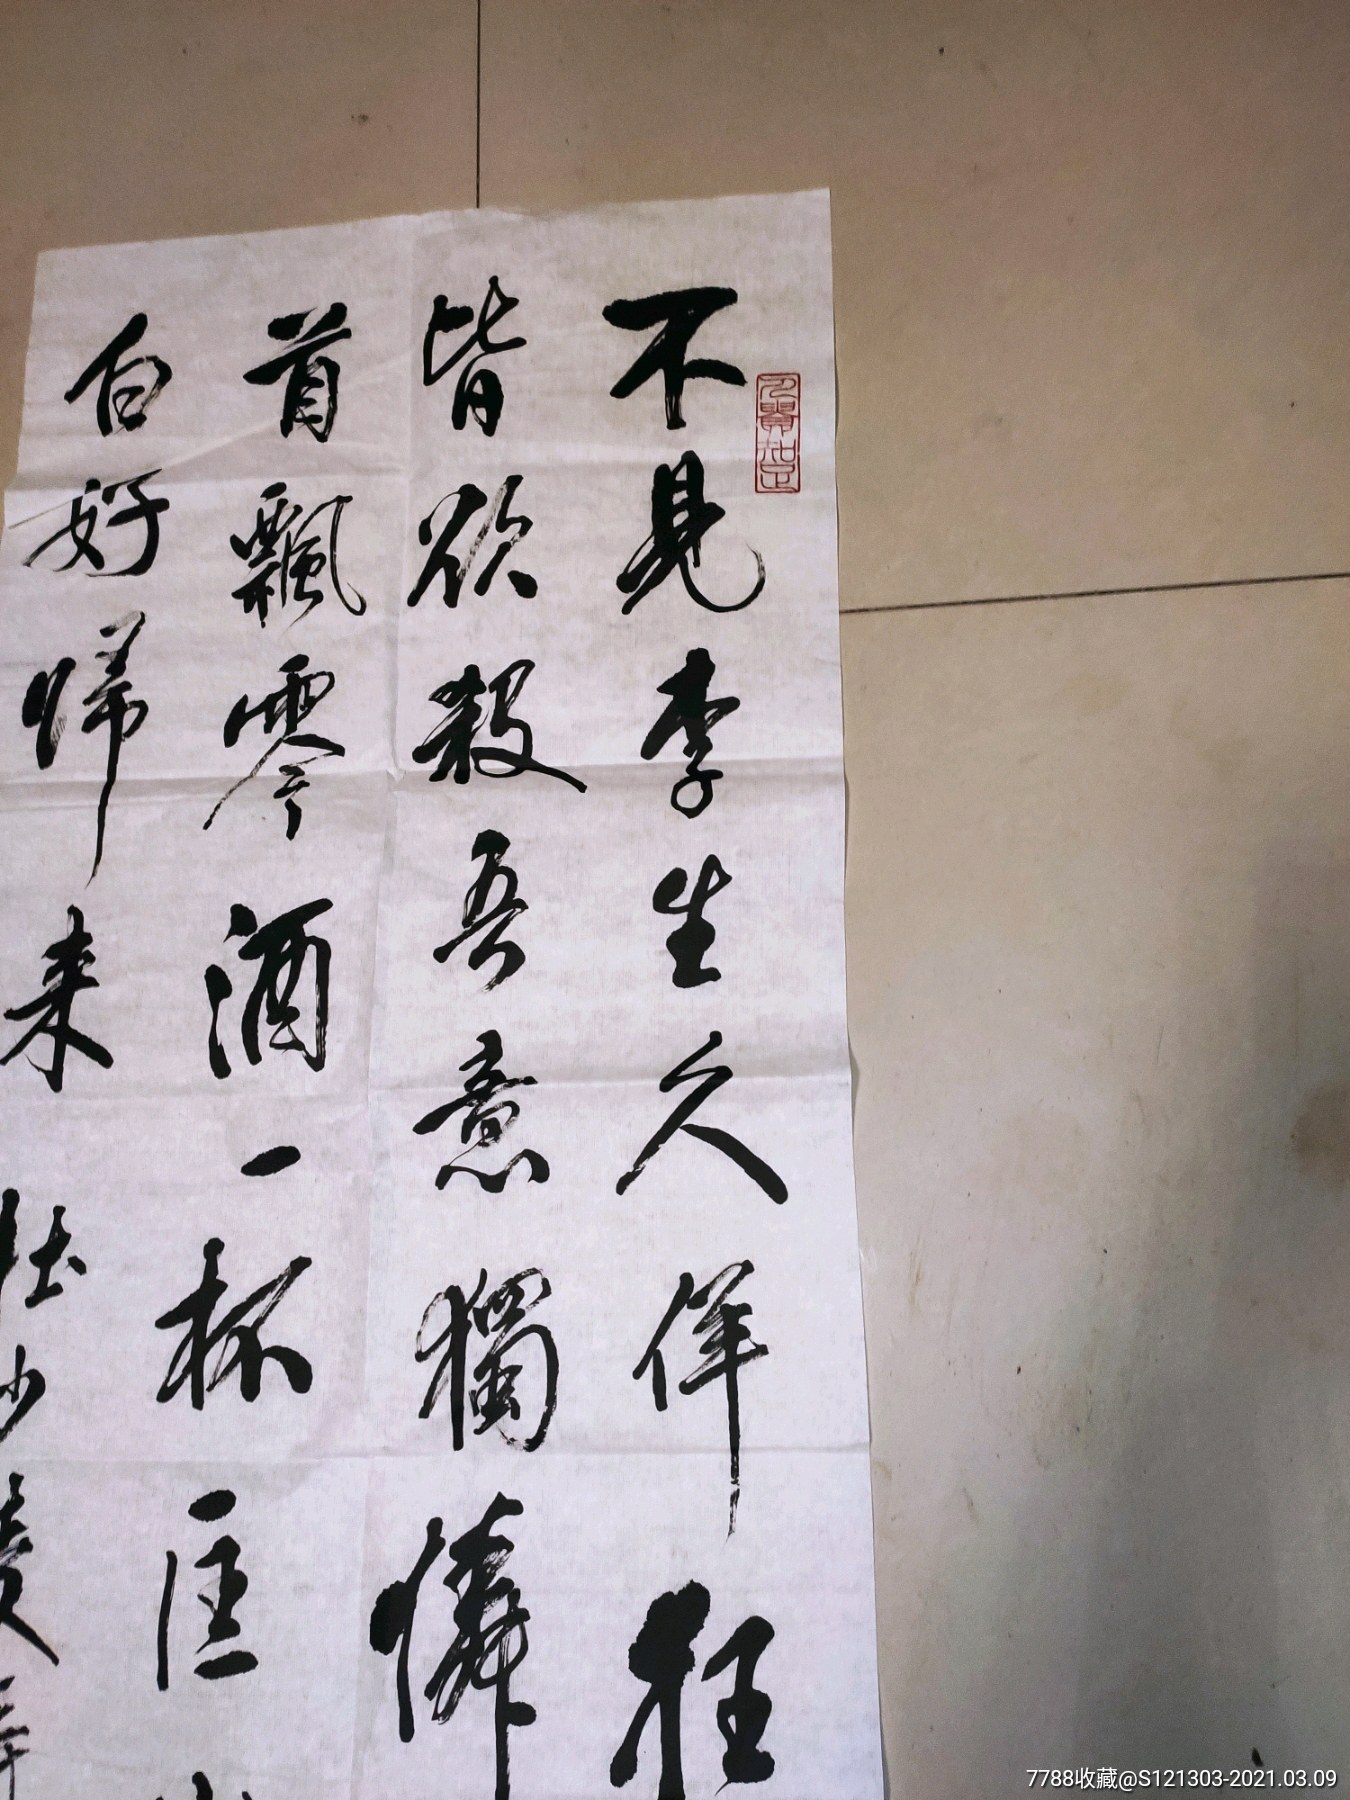 不見李生久佯狂
皆欲殺吾意獨憐
首飄零酒一杯匡
白好帰来
杜少陵
貴知足
7788收藏@S121303-2021.03.09